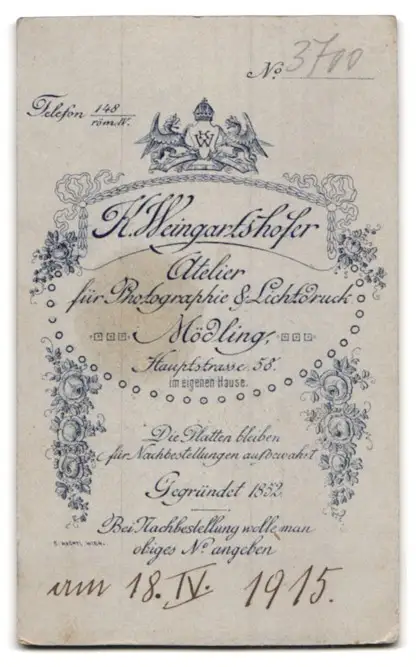 No. 3700
Telefon 148
röm. IV.
KW
K. Weingartshofer
Atelier
für Photographie & Lichtdruck
Mödling,
Hauptstrasse 58.
im eigenen Hause.
Die Platten bleiben
für Nachbestellungen aufbewahrt
Gegründet 1882.
Bei Nachbestellung wolle man
obiges No. angeben
WIEN.
am 18. IV. 1915.